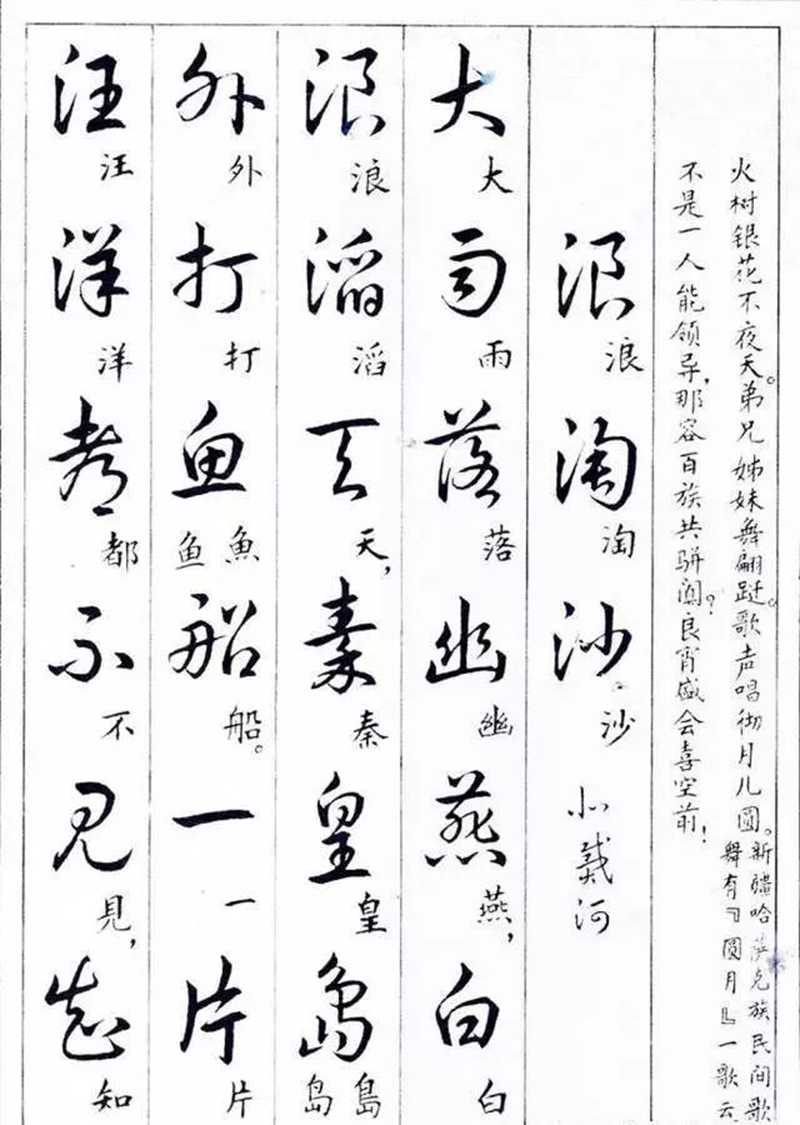 火树银花不夜天。弟兄姊妹舞翩跹。歌声唱彻月儿圆。
新疆哈萨克族民间歌
舞有『圆月』一歌云
不是一人能领导,那容百族共骈阗?良宵盛会喜空前!
浪淘沙。北戴河
浪淘沙
大雨落幽燕白
大雨落幽燕,白
浪滔天秦皇島
浪滔天,秦皇島岛
外打鱼船一片
外打魚鱼船。一片
汪洋都不见知
汪洋都不見,知